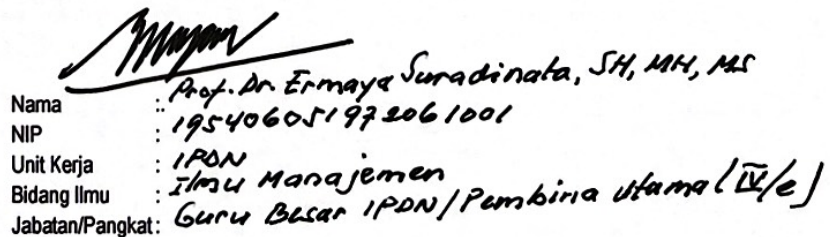 Nama : Prof. Dr. Ermaya Suradinata, SH, MH, MS
NIP : 195406051972061001
Unit Kerja : IPDN
Bidang Ilmu : Ilmu Manajemen
Jabatan/Pangkat: Guru Besar IPDN/Pembina Utama (IV/e)